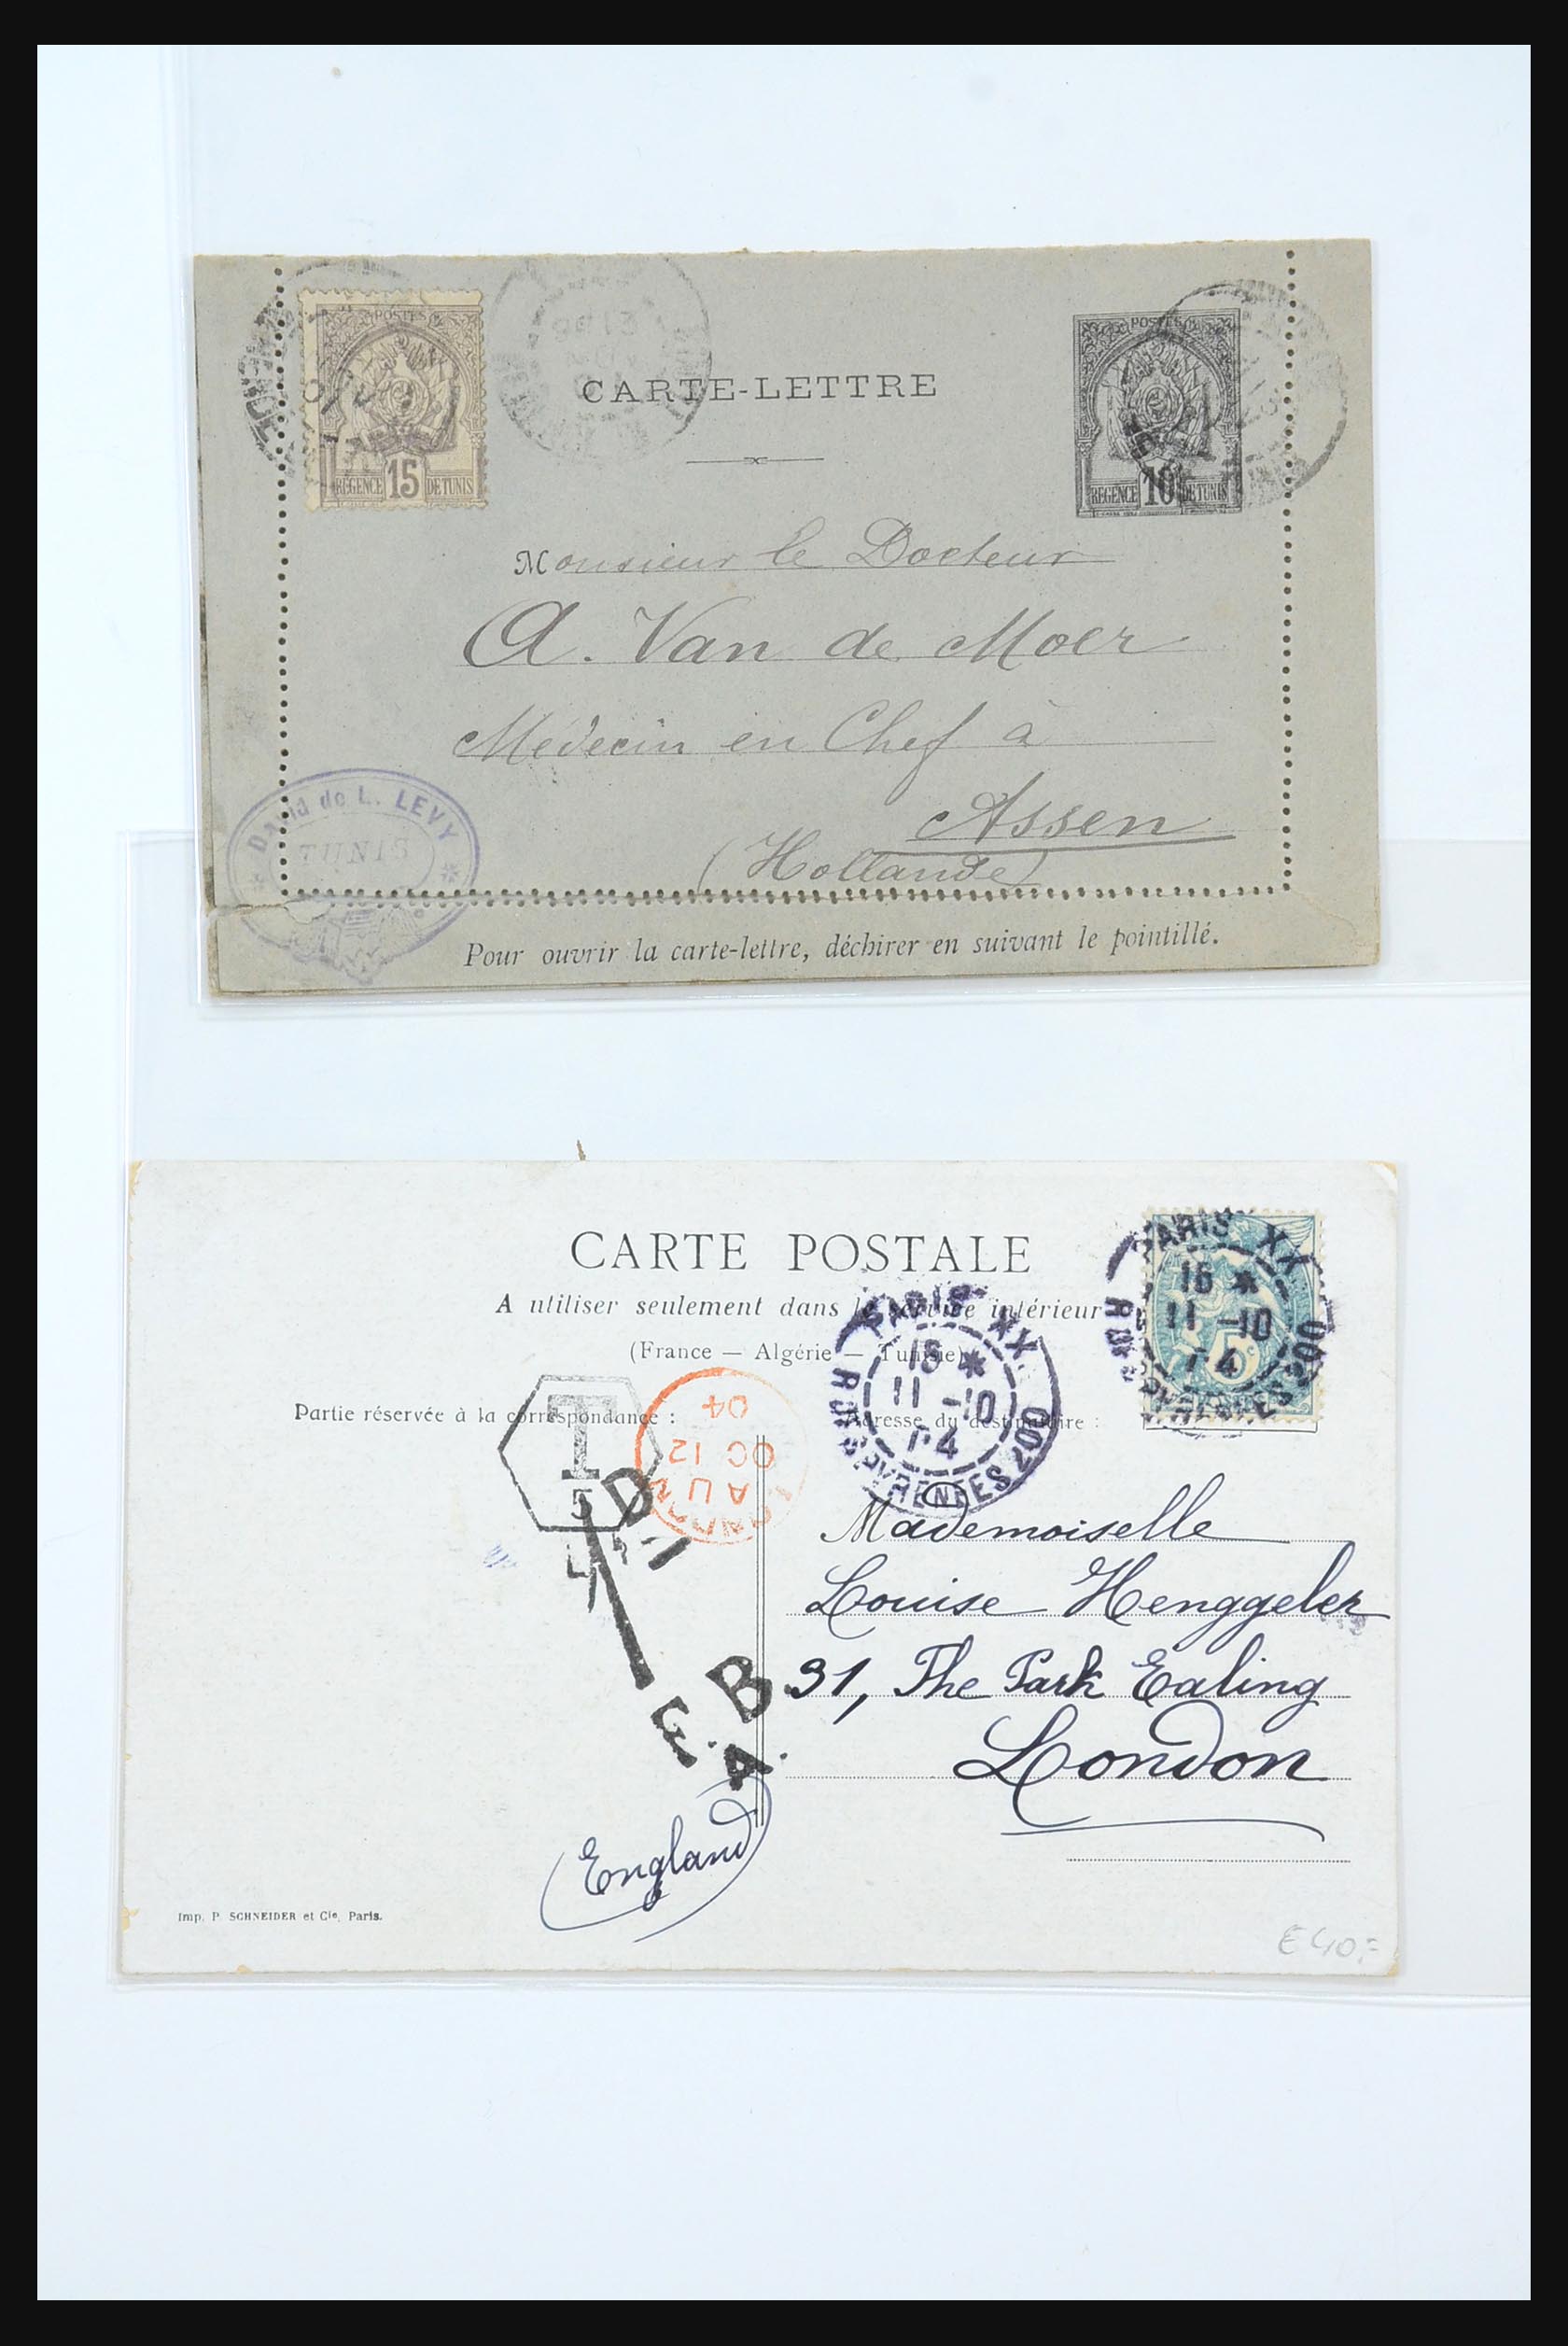 CARTE-LETTRE
POSTES
15
RÉGENCE DE TUNIS
POSTES
10
RÉGENCE DE TUNIS
Monsieur le Docteur
A. Van de Moer
Médecin en Chef à
Assen
(Hollande)
David de L. LEVY
TUNIS
Pour ouvrir la carte-lettre, déchirer en suivant le pointillé.
CARTE POSTALE
A utiliser seulement dans le service intérieur
(France — Algérie — Tunisie)
PARIS XX
15 *
11 -10
04
R. DES PYRENEES 200
PARIS XX
15 *
11 -10
04
R. DES PYRENEES 200
5c
Partie réservée à la correspondance :
Adresse du destinataire :
T
5
LONDON
AU
OC 12
04
1D
E.B.
A.
Mademoiselle
Louise Henggeler
31, The Park Ealing
London
(England)
Imp. P. SCHNEIDER et Cie, Paris.
€ 40,=